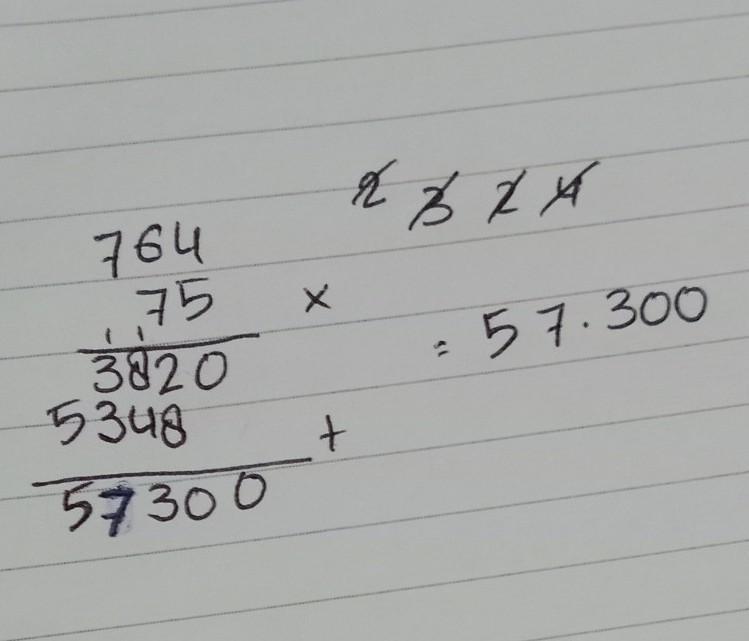 2 3 2 4
764
75 ×
1 1
3820
5348 +
57300
= 57.300